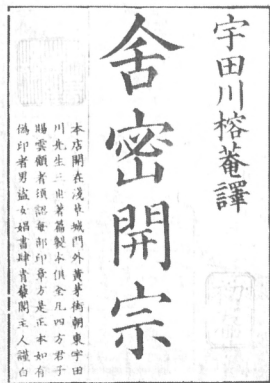 宇田川榕菴譯
舍密開宗
本店開在淺草城門外黃茅街朝東宇田
川先生三世著篇製本俱全凡四方君子
賜雲顧者須認每部印章方是正本如有
偽印者男盜女娼書肆青藜閣主人謹白